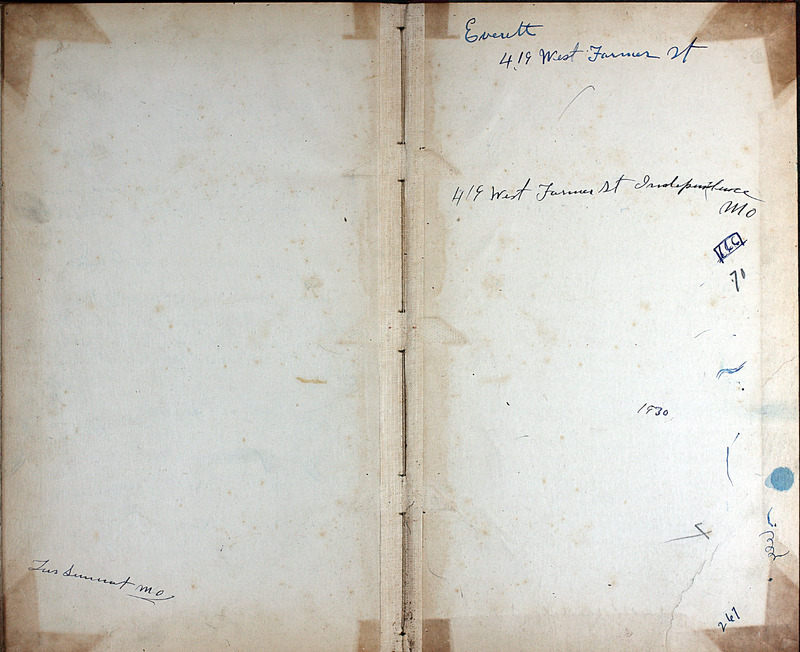 Everett
419 West Farmer St
419 West Farmer St Independence
Mo
71
1930
Lees Summit Mo
267